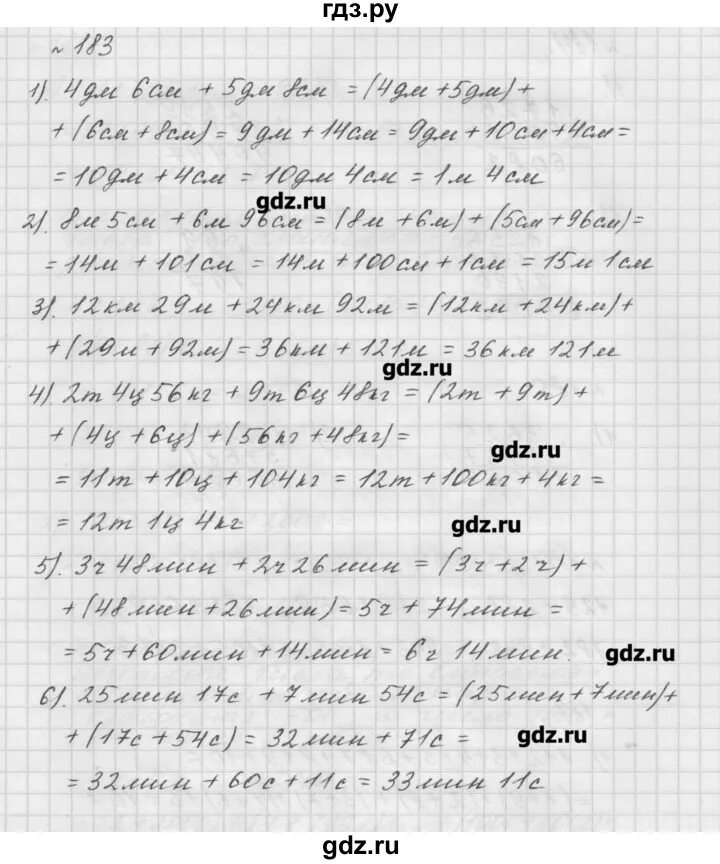 гдз.ру
№ 183
1). 4дм 6см + 5дм 8см = (4дм +5дм) +
+ (6см + 8см) = 9дм + 14см = 9дм + 10см +4см =
= 10дм + 4см = 10дм 4см = 1м 4см
gdz.ru
2). 8м 5см + 6м 96см = (8м + 6м) + (5см + 96см) =
= 14м + 101см = 14м + 100см + 1см = 15м 1см
3). 12км 29м + 24км 92м = (12км + 24км) +
+ (29м + 92м) = 36км + 121м = 36км 121м
gdz.ru
4). 2т 4ц 56кг + 9т 6ц 48кг = (2т + 9т) +
+ (4ц + 6ц) + (56кг + 48кг) =
gdz.ru
= 11т + 10ц + 104кг = 12т + 100кг + 4кг =
= 12т 1ц 4кг
gdz.ru
5). 3ч 48мин + 2ч 26мин = (3ч + 2ч) +
+ (48мин + 26мин) = 5ч + 74мин =
= 5ч + 60мин + 14мин = 6ч 14мин.
gdz.ru
6). 25мин 17с + 7мин 54с = (25мин + 7мин) +
+ (17с + 54с) = 32мин + 71с =
gdz.ru
= 32мин + 60с + 11с = 33мин 11с
gdz.ru